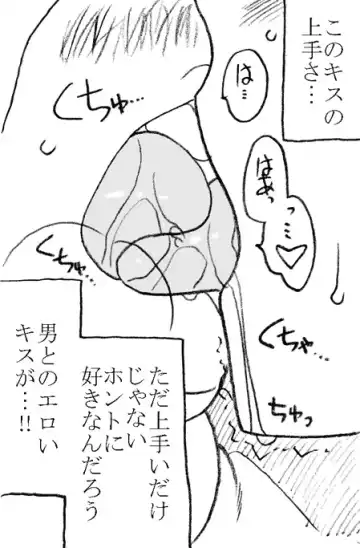 このキスの
上手さ…
は…
くちゅ…
はぁっ
っ…♡
くちゅ…
くちゅ…
くちゅ…
ちゅっ
ただ上手いだけ
じゃない
ホントに
好きなんだろう
男とのエロい
キスが…!!